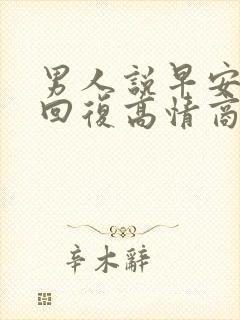 男人說早安
回復高情商
辛木辭